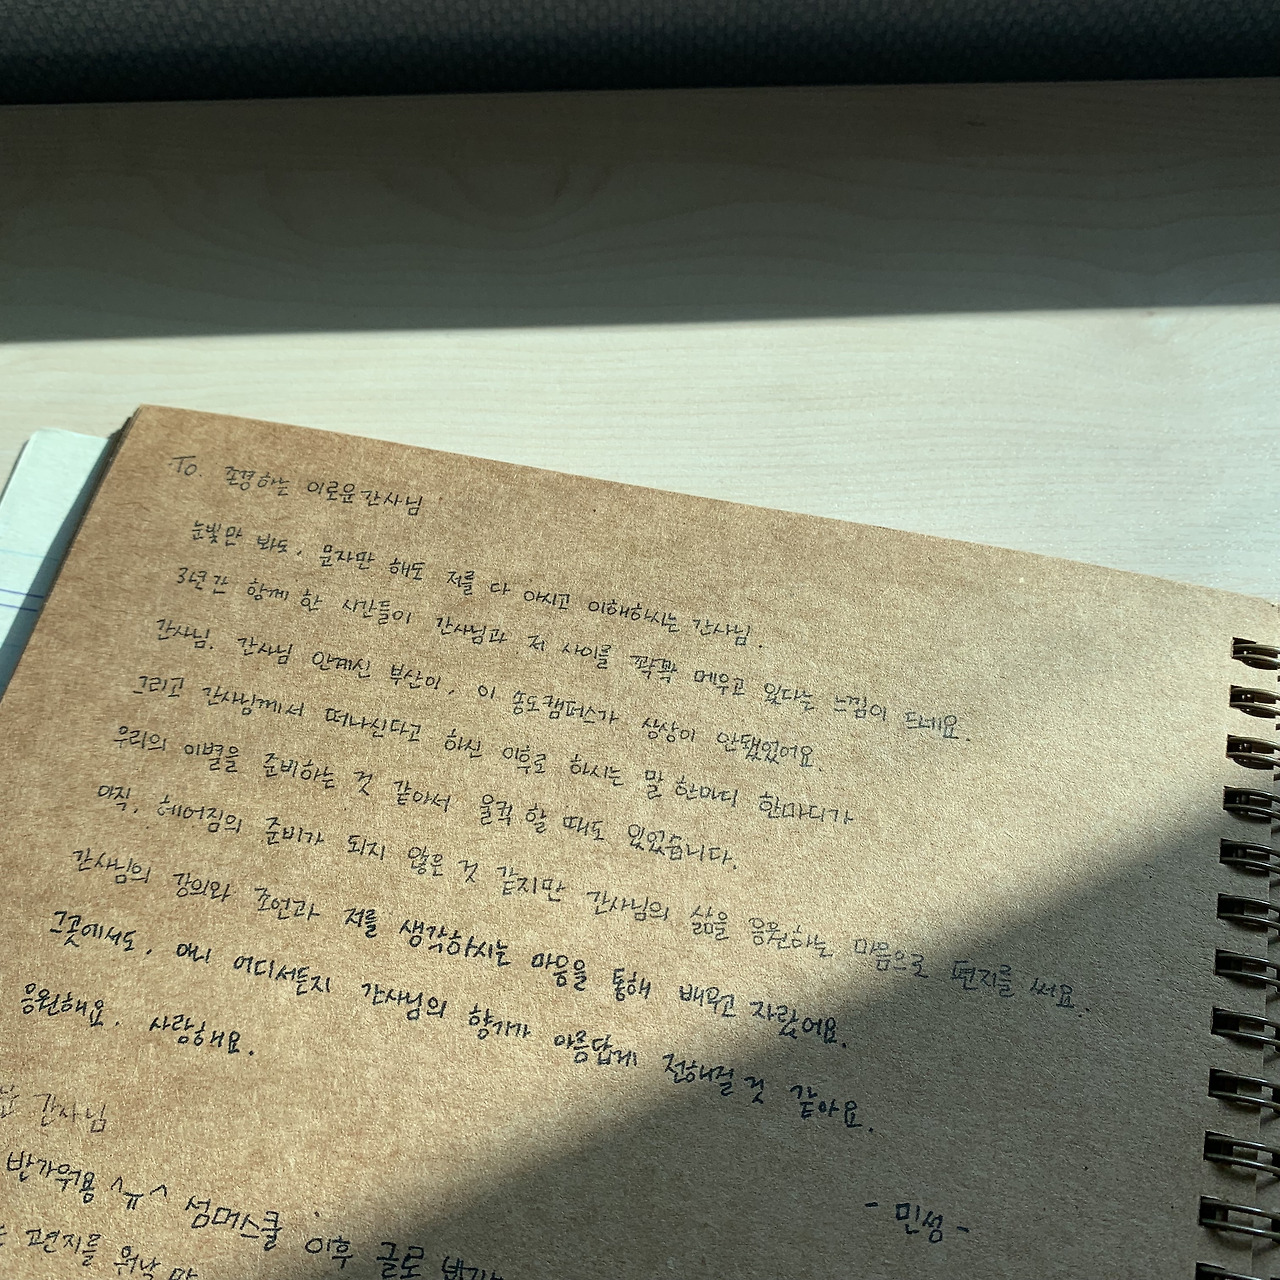 To. 존경하는 이로운간사님
눈빛만 봐도, 문자만 해도 저를 다 아시고 이해하시는 간사님.
3년간 함께 한 시간들이 간사님과 저 사이를 꽉꽉 메우고 있다는 느낌이 드네요.
간사님. 간사님 안계신 부산이, 이 송도캠퍼스가 상상이 안됐었어요.
그리고 간사님께서 떠나신다고 하신 이후로 하시는 말 한마디 한마디가
우리의 이별을 준비하는 것 같아서 울컥 할 때도 있었습니다.
아직, 헤어짐의 준비가 되지 않은 것 같지만 간사님의 삶을 응원하는 마음으로 편지를 써요
간사님의 강의와 조언과 저를 생각하시는 마음을 통해 배우고 자랐어요.
그곳에서도, 아니 어디서든지 간사님의 향기가 아름답게 전해질 것 같아요.
응원해요. 사랑해요.
- 민성 -
간사님
반가워용 ^ㅠ^ 섬머스쿨 이후 글로